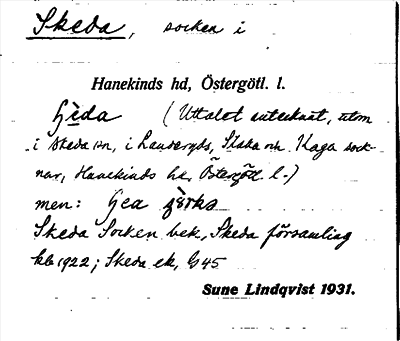 Skeda, socken i
Hanekinds hd, Östergötl. l.
(Uttalet antecknat, utom
i Skeda sn, i Landeryds, Slaka och Kaga sock-
nar, Hanekinds hd, Östergötl l.)
men:
Skeda Socken bek., Skeda församling
1922; Skeda ek, G45
Sune Lindqvist 1931.